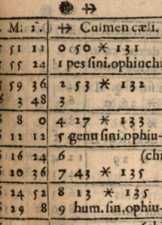 M: 1. Culmen cæli.
51 11 0 50 * 131
55 24 1 pes sini. ophiuchi
59 36 2 53 * 132
3 48 3
8 0 4 27 * 133
12 12 5 genu sini. ophiu-
16 24 6 (chi
20 36 7 43 * 135
24 52 8 13 * 135
29 8 9 hum. sin. ophiu-